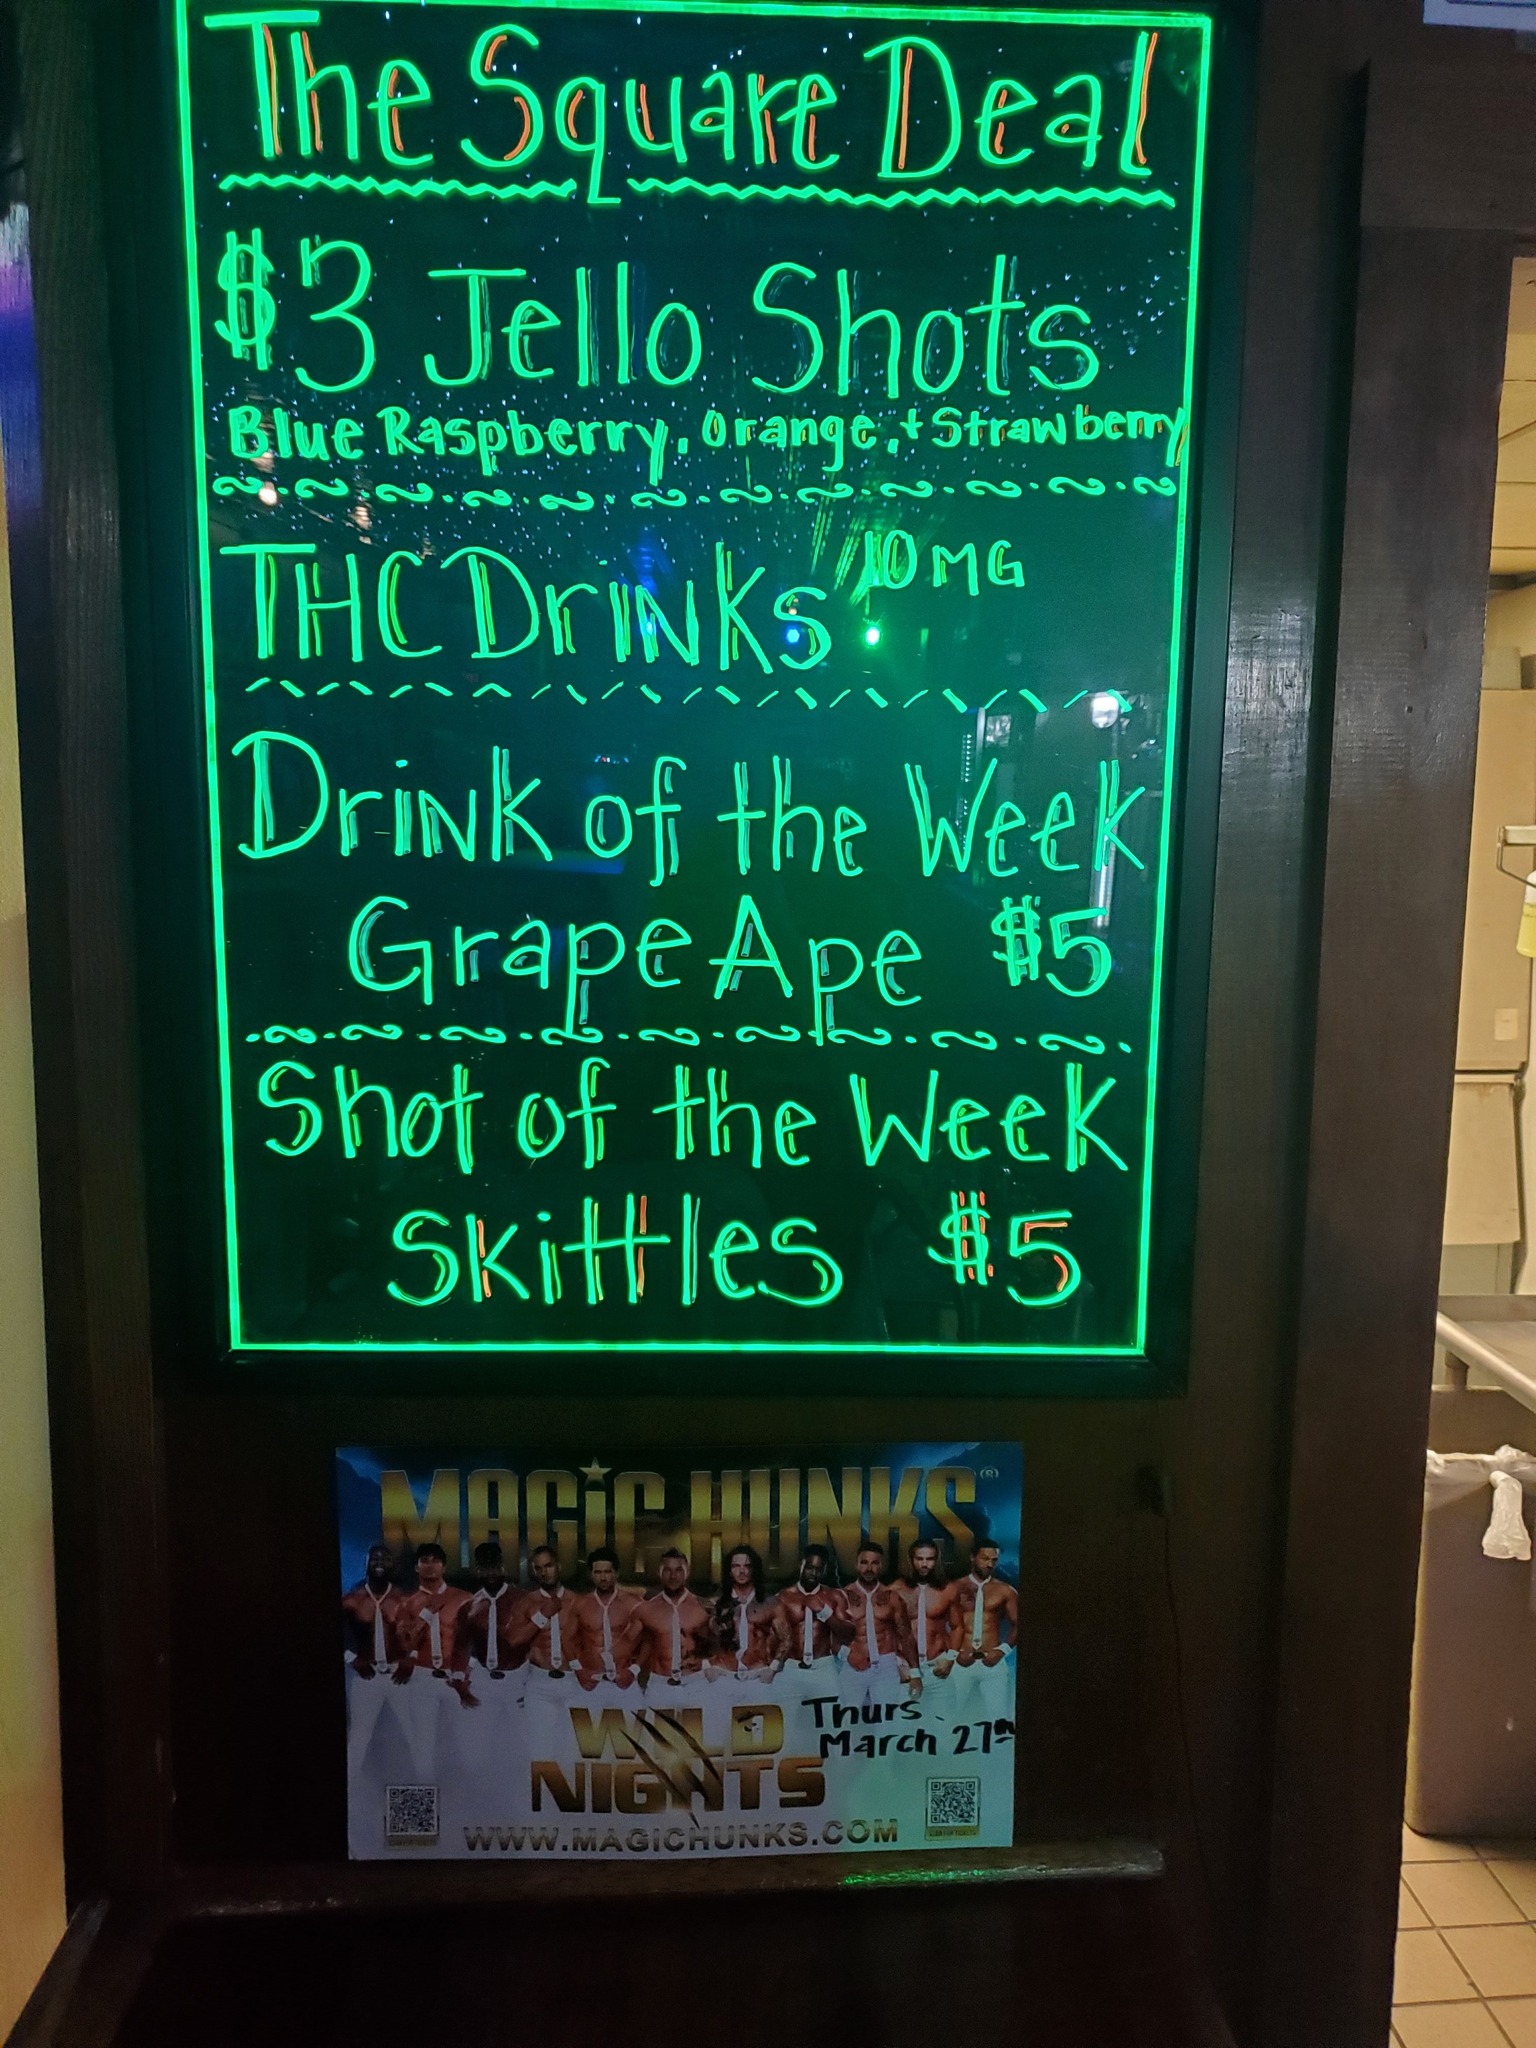 The Square Deal
$3 Jello Shots
Blue Raspberry, Orange, + Strawberry
THC Drinks 10 MG
Drink of the Week
Grape Ape $5
Shot of the Week
Skittles $5
MAGIC HUNKS®
WILD
NIGHTS
Thurs.
March 27th
WWW.MAGICHUNKS.COM